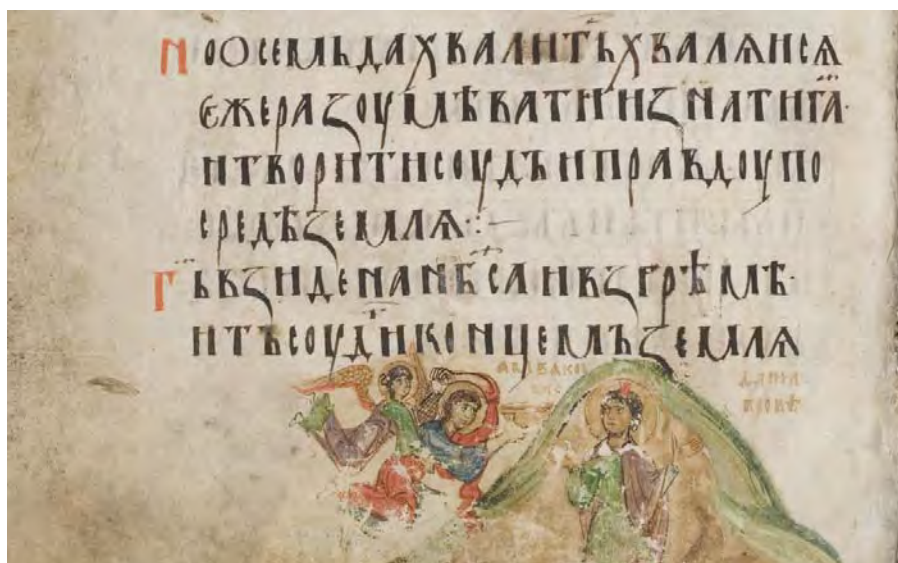 Н оѺсемьдахвалитьхвалѧисѧ
єжеразоумѣватиизнатига·
итворитисоудъиправдоупо
средѣземлѧ·:·—
Г ьвъзиденанб҃саивъзгрѣмѣ·
итъсоудиконцемъземлѧ